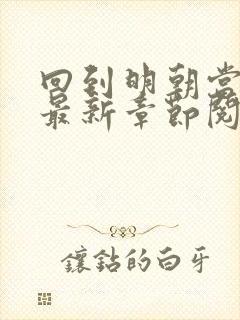 回到明朝当
最新章节阅
镶钻的白牙